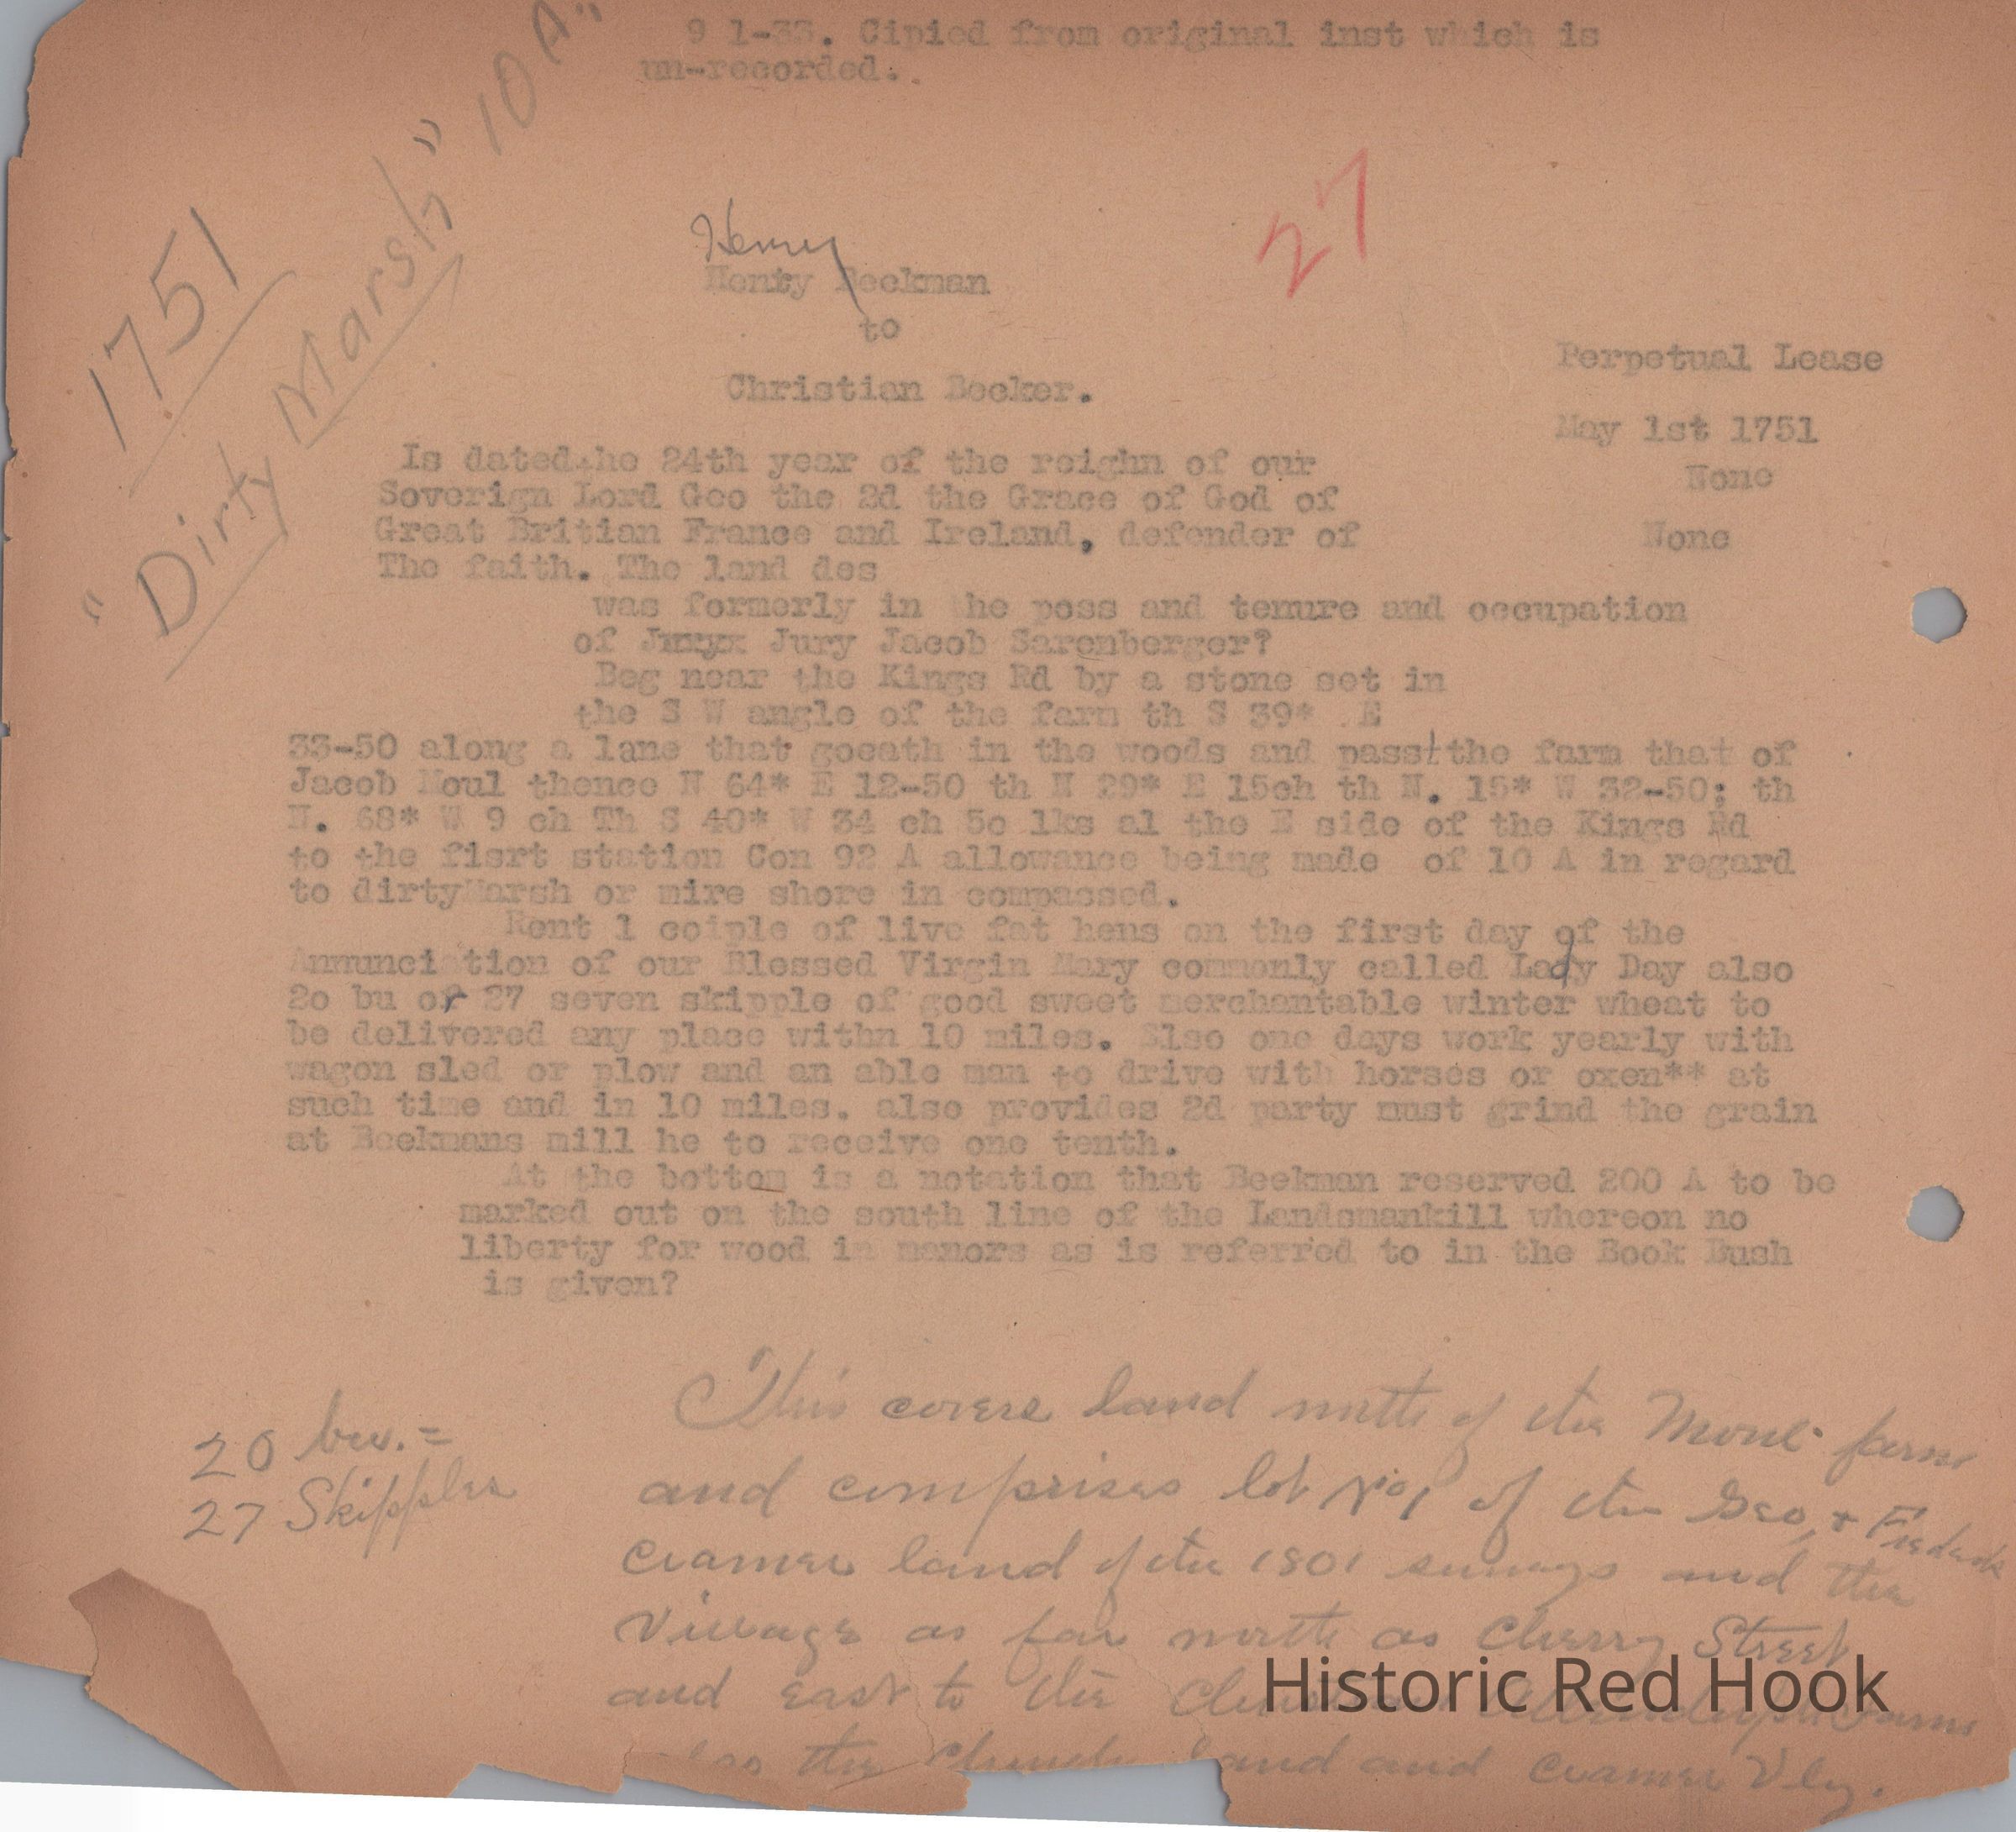 9 1-33. Cipied from original inst which is
un-recorded.
"Dirty Marsh" 10 A."
1751
27
Henry
Henty Beekman
to
Christian Becker.
Perpetual Lease
May 1st 1751
None
None
Is dated the 24th year of the reighn of our
Soverign Lord Geo the 2d the Grace of God of
Great Britian France and Ireland, defender of
The faith. The land des
was formerly in the poss and tenure and occupation
of Juryx Jury Jacob Sarenberger?
Beg near the Kings Rd by a stone set in
the S W angle of the farm th S 39* E
33-50 along a lane that goeath in the woods and passt the farm that of
Jacob Moul thence N 64* E 12-50 th N 29* E 15ch th N. 15* W 32-50; th
N. 68* W 9 ch Th S 40* W 34 ch 5o lks al the E side of the Kings Rd
to the fisrt station Con 92 A allowance being made of 10 A in regard
to dirtyMarsh or mire shore in compassed.
Rent 1 coiple of live fat hens on the first day of the
Annunciation of our Blessed Virgin Mary commonly called Lady Day also
2o bu or 27 seven skipple of good sweet merchantable winter wheat to
be delivered any place withn 10 miles. Slso one days work yearly with
wagon sled or plow and an able man to drive with horses or oxen** at
such time and in 10 miles. also provides 2d party must grind the grain
at Beekmans mill he to receive one tenth.
At the bottom is a notation that Beekman reserved 200 A to be
marked out on the south line of the Landsmankill whereon no
liberty for wood in manors as is referred to in the Book Bush
is given?
20 bu. =
27 Skipples
This covers land north of the Moul farm
and comprises lot No 1 of the Geo. + Frederick
Cramer land of the 1801 surveys and the
Village as far north as Cherry Street
and east to the farms
also the Church land and Cramer Vly.
Historic Red Hook